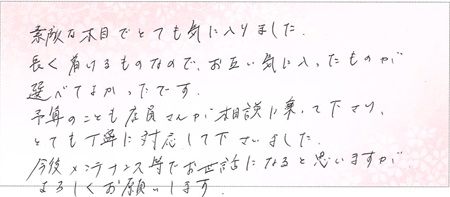 素敵な木目でとても気に入りました.
長く着けるものなので、お互い気に入ったものが
選べてよかったです.
予算のことも店員さんが相談に乗って下さり、
とても丁寧に対応して下さいました.
今後メンテナンス等でお世話になると思いますが
よろしくお願いします.